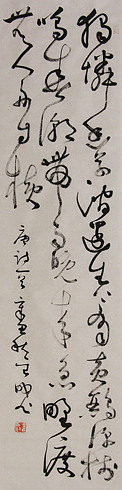 獨憐幽草澗邊生上有黃鸝深樹
鳴春潮帶雨晚來急野渡
無人舟自橫
唐詩一首